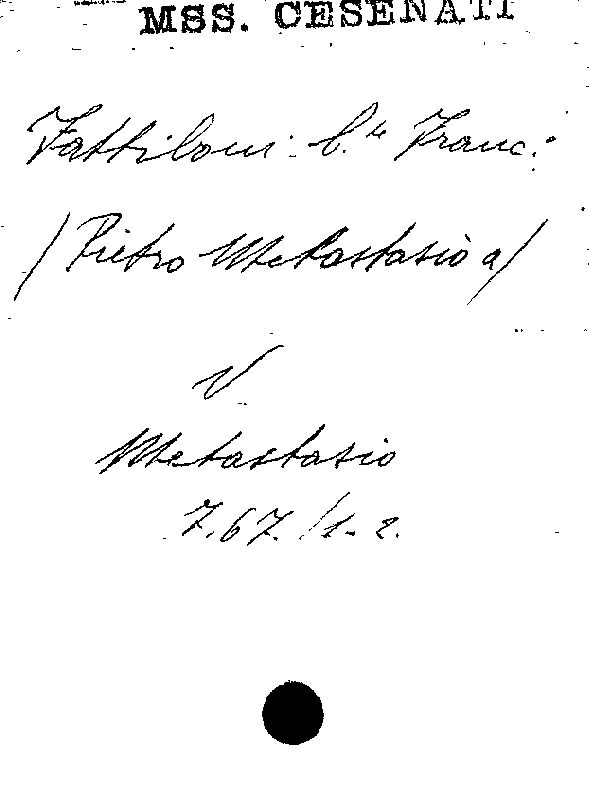 MSS. CESENATI
Fattiloni: C.te Franc.:
/Pietro Metastasio a/
V
Metastasio
7.67./1-2.